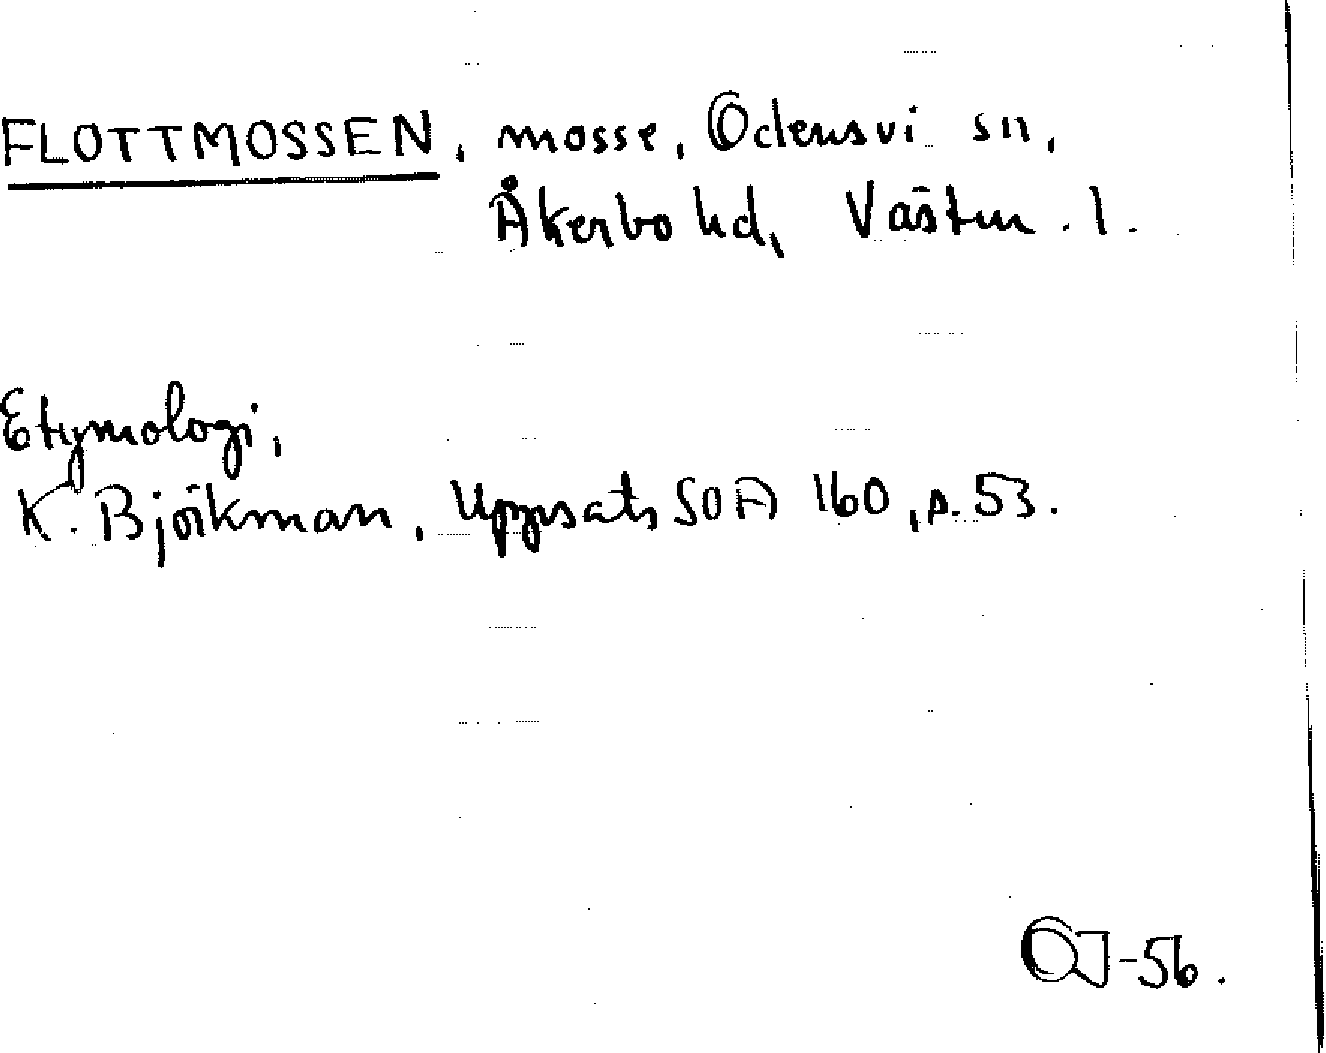 FLOTTMOSSEN, mosse, Odensvi sn,
Åkerbo hd, Västm. l.
Etymologi,
K. Björkman, Uppsats SOA 160, s. 53.
-56.